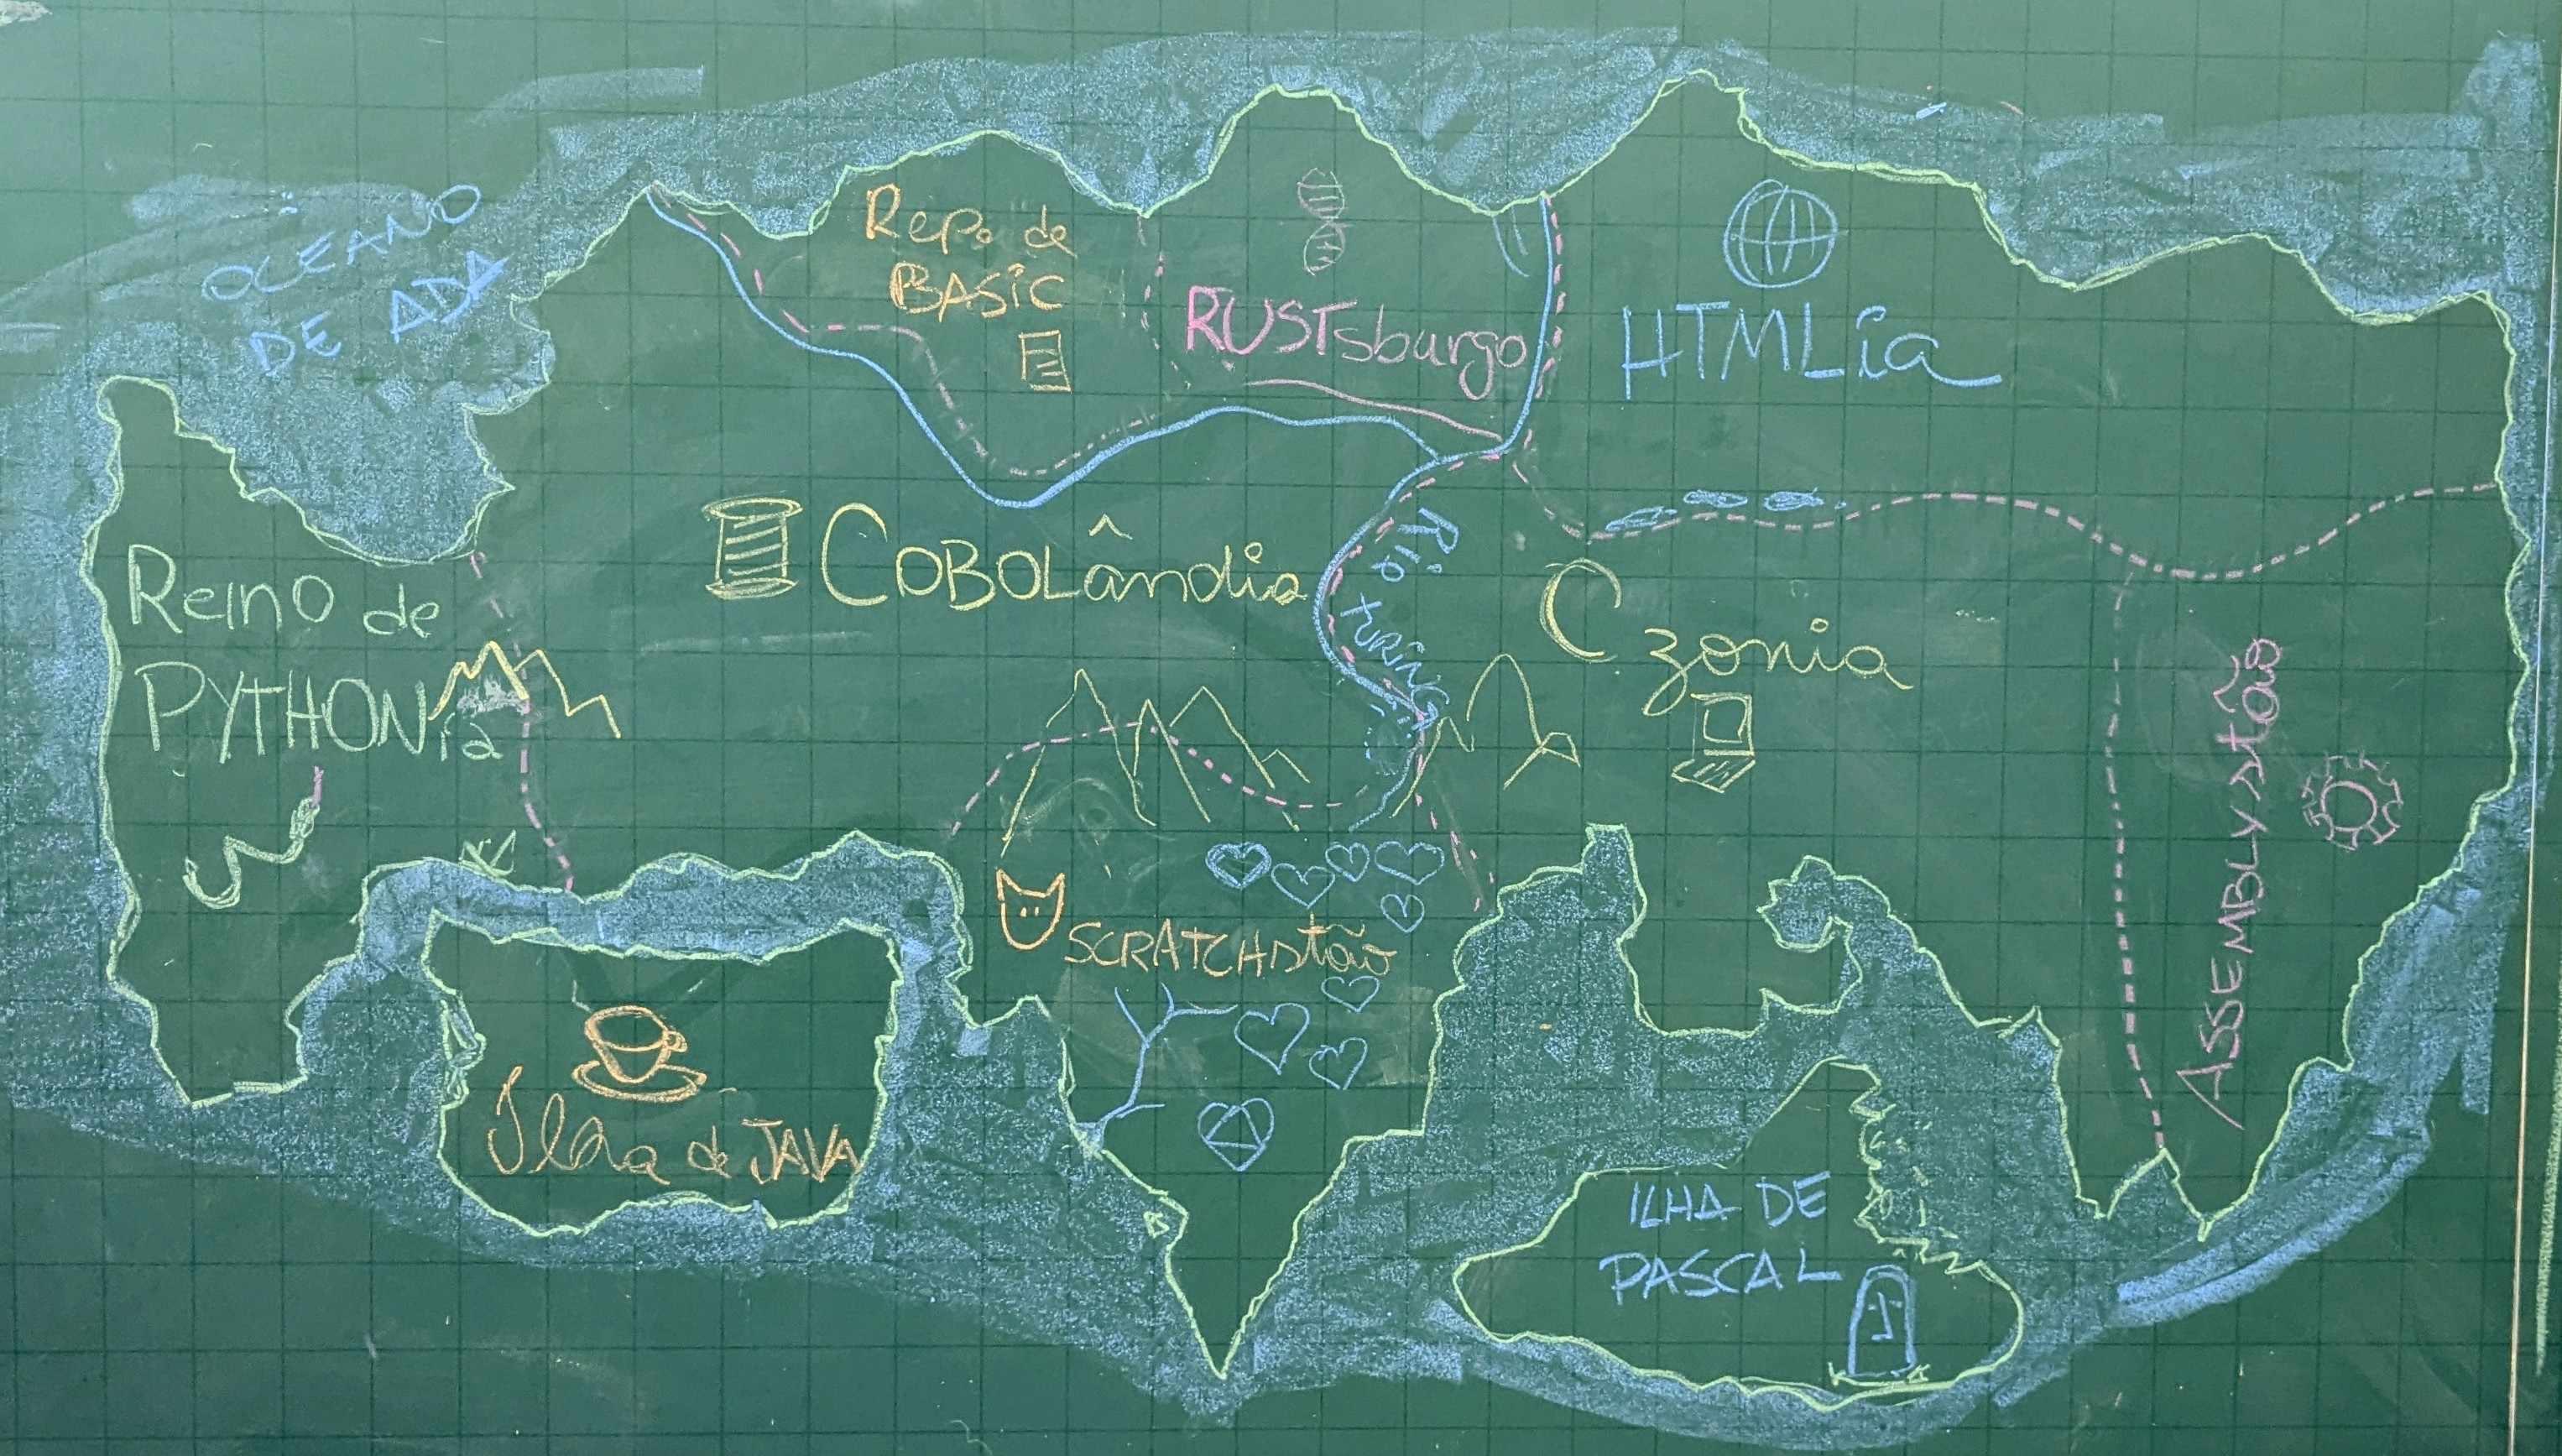 OCEANO
DE ADA
Rep. de
BASIC
RUSTsburgo
HTMLia
COBOLândia
Rio Turing
Reino de
PYTHONia
C zonia
ASSEMBLYstão
SCRATCHstão
Ilha de JAVA
ILHA DE
PASCAL